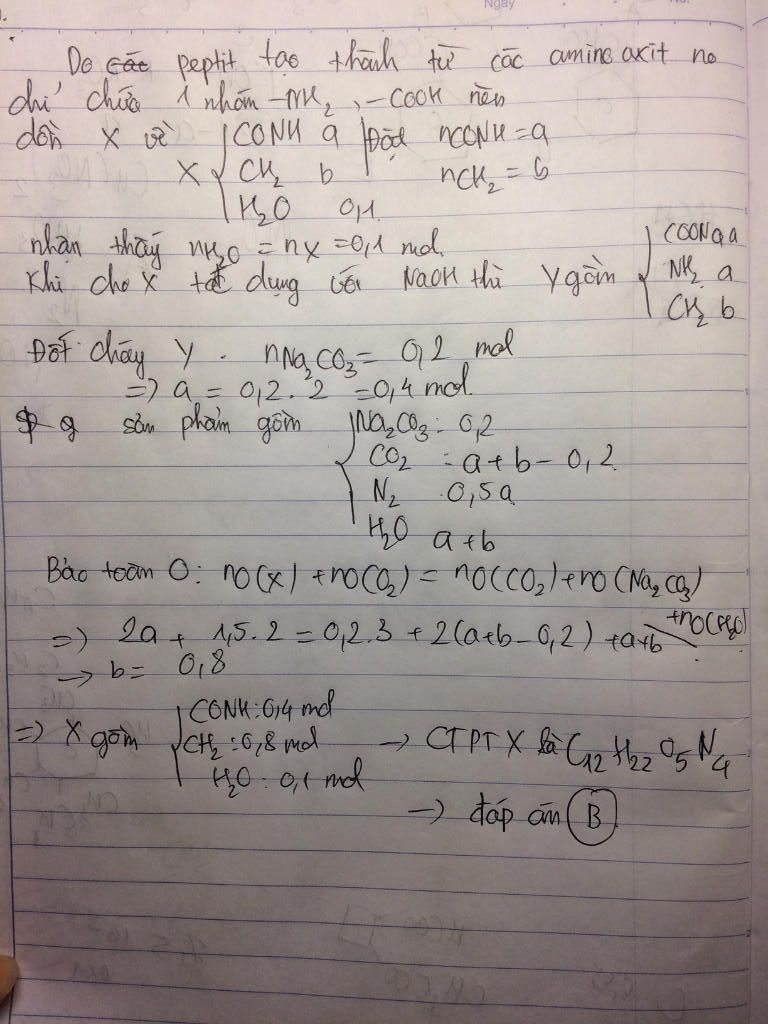 Ngày
Do các peptit tạo thành từ các amino axit no
chỉ chứa 1 nhóm -NH2, -COOH nên
dồn X về X { CONH a | Đặt nCONH = a
CH2 b nCH2 = b
H2O 0,1
nhận thấy nH2O = nX = 0,1 mol.
Khi cho X tác dụng với NaOH thì Y gồm { COONa a
NH2 a
CH2 b
Đốt cháy Y. nNa2CO3 = 0,2 mol
=> a = 0,2.2 = 0,4 mol.
sản phẩm gồm { Na2CO3: 0,2
CO2 = a+b-0,2
N2 0,5a
H2O a+b
Bảo toàn O: nO(X) + nO(O2) = nO(CO2) + nO(Na2CO3)
+nO(H2O)
=> 2a + 1,5.2 = 0,2.3 + 2(a+b-0,2) + a+b
-> b = 0,8
=> X gồm { CONH: 0,4 mol
CH2: 0,8 mol -> CTPT X là C12H22O5N4
H2O: 0,1 mol
-> đáp án B